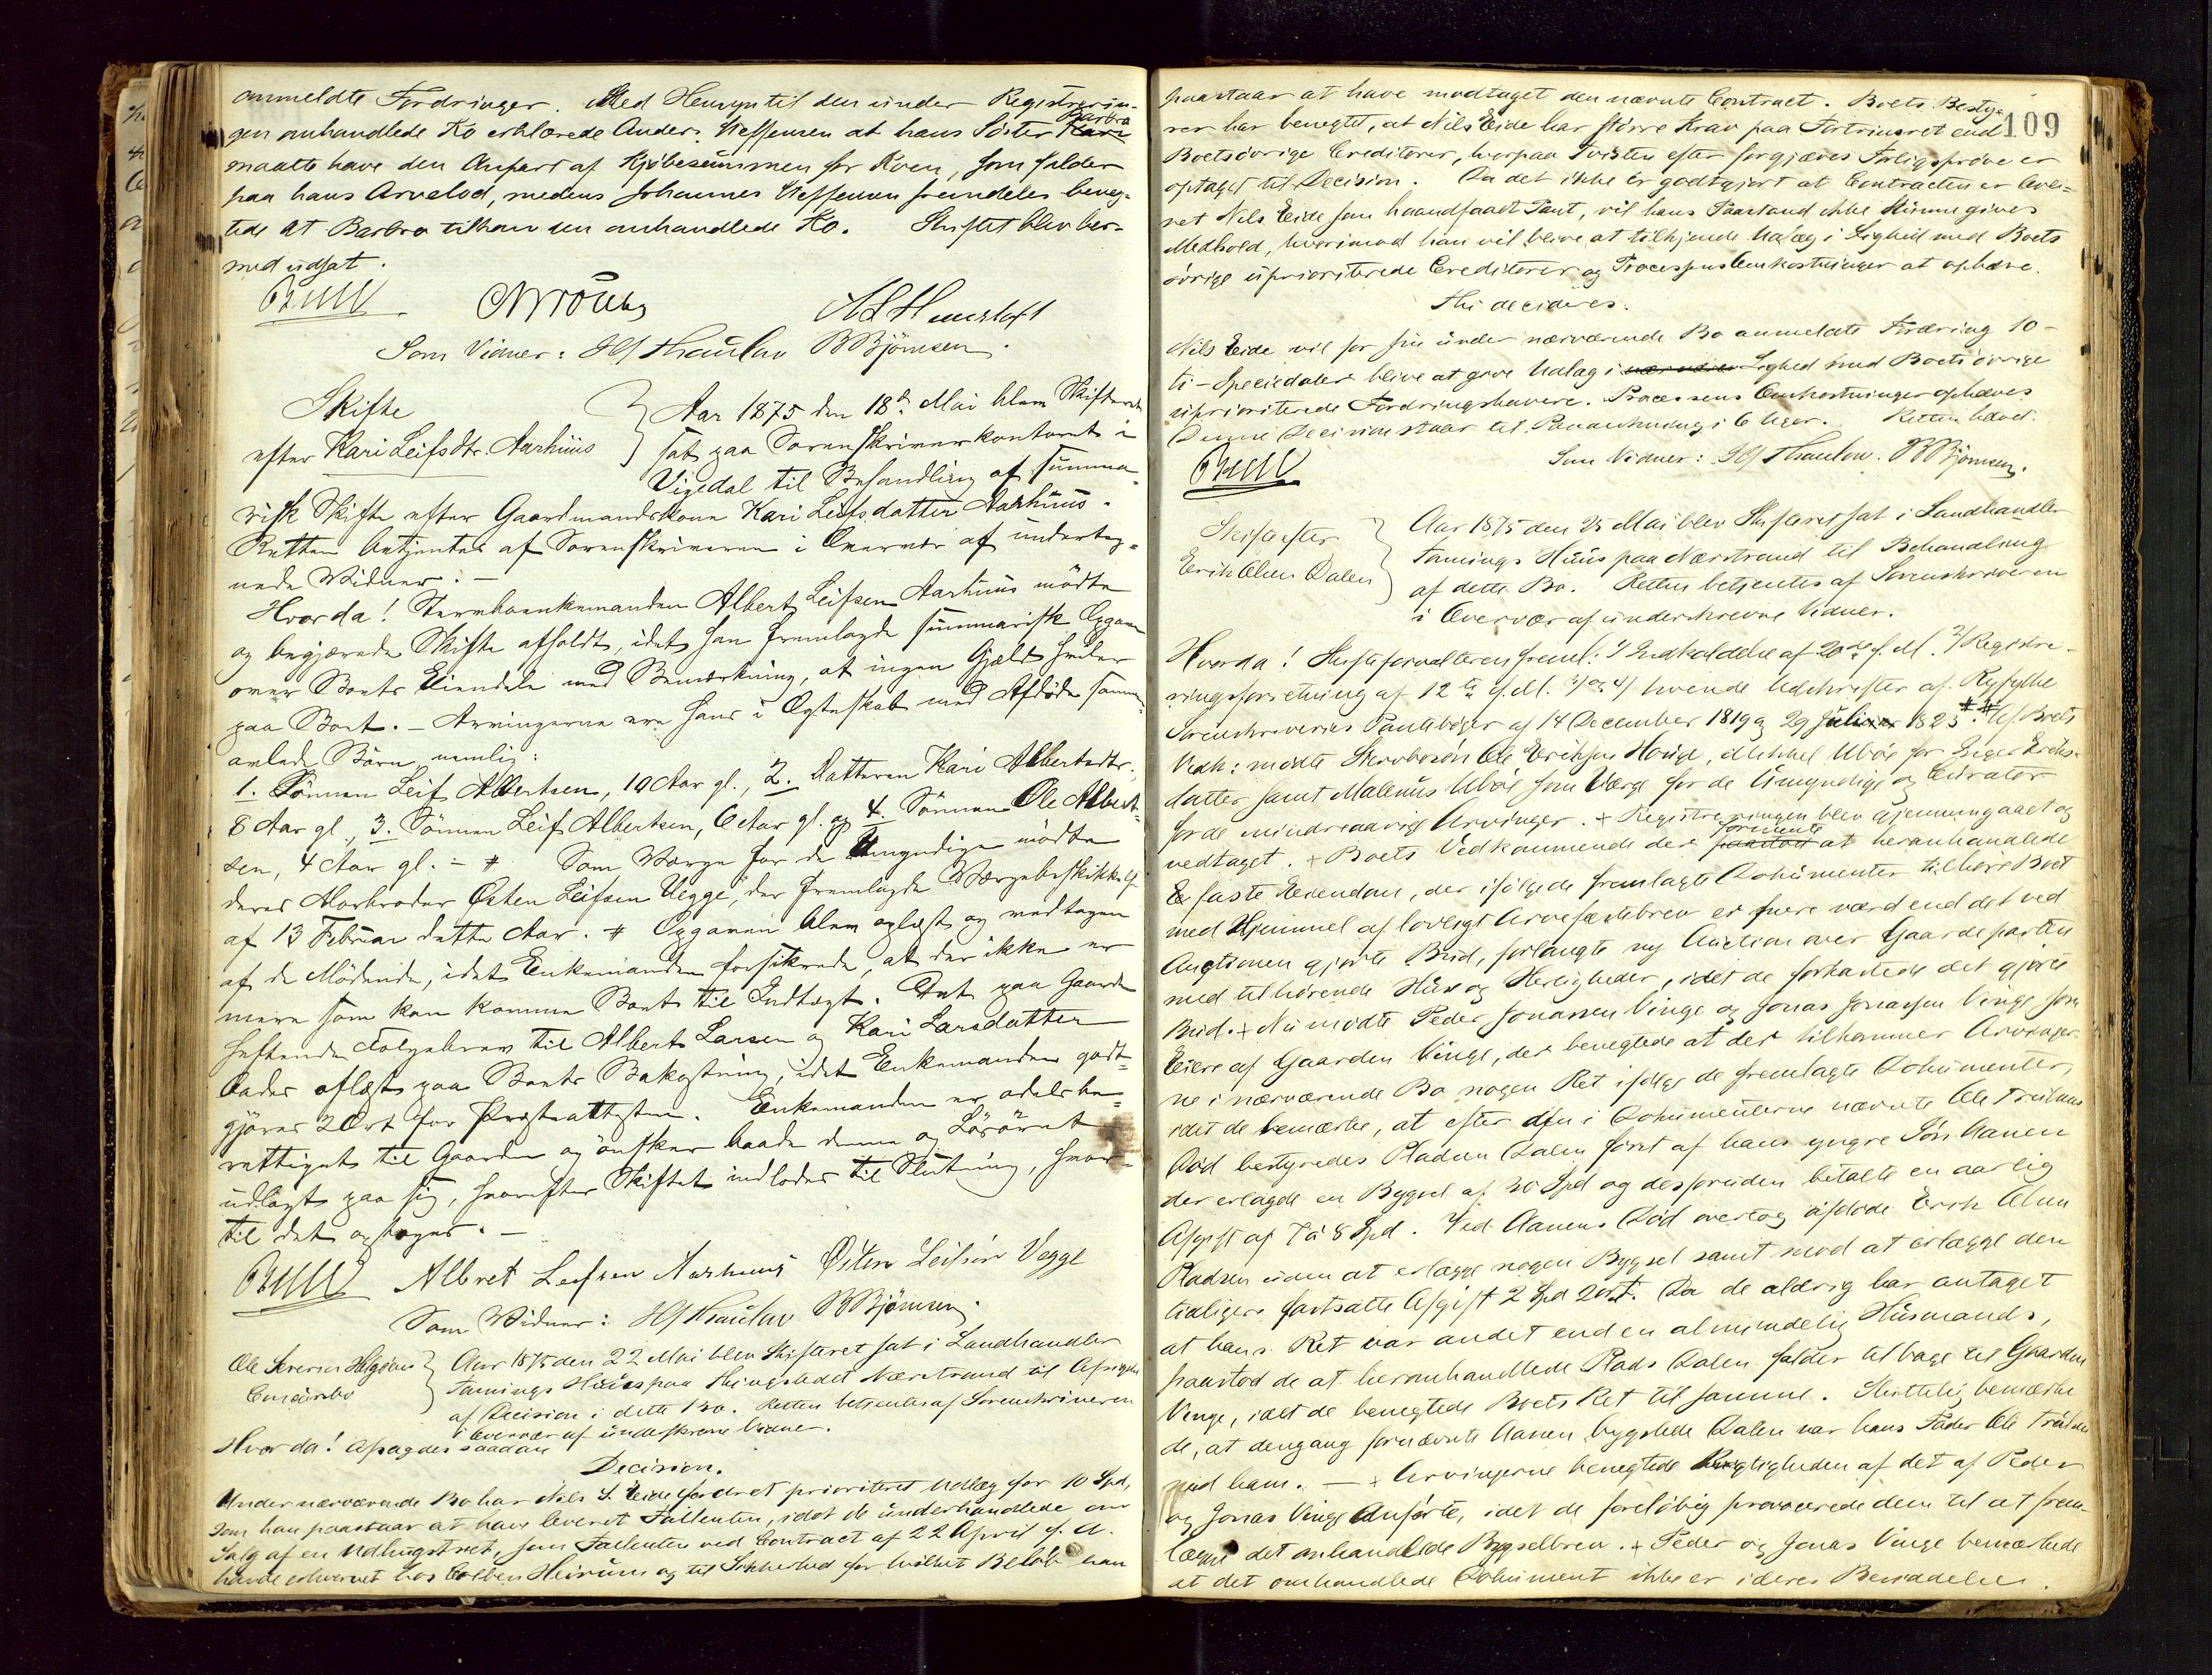 anmeldte Fordringer. Med Hensyn til den under Registrerin-
gen omhandlede Ko erklærede Anders Steffensen at hans Söster Kari Barbra
maatte have den Anpart af Kjöbesummen for Koen, som falder
paa hans Arvelod, medens Johannes Steffensen fremdeles beneg-
tede at Barbra tilkom den omhandlede Ko. Skiftet blev her-
med udsat.
Som Vidner: H Thaulow B Björnsen.
Skifte
efter Kari Leifsdtr. Aarhuus
Aar 1875 den 18de Mai blev Skifteret
sat paa Sorenskriverkontoret i
Vigedal til Behandling af summa-
risk Skifte efter Gaardmandskone Kari Leifsdatter Aarhuus.
Retten betjentes af Sorenskriveren i Overvær af underteg-
nede Vidner. —
Hvorda! Stervboenkemanden Albert Leifsen Aarhuus mödte
og begjærede Skifte afholdt, idet han fremlagde summarisk Opgave
over Boets Eiendele med Bemærkning, at ingen Gjæld hviler
paa Boet. — Arvingerne ere hans i Ægteskab med Afdöde sammen-
avlede Börn, nemlig:
1. Sönnen Leif Albertsen, 10 Aar gl., 2. Datteren Kari Albertsdtr.
8 Aar gl., 3. Sönnen Leif Albertsen, 6 Aar gl. og 4. Sönnen Ole Albert-
sen, 4 Aar gl. — # Som Værge for de Umyndige mödte
deres Morbroder Östen Leifsen Vegge, der fremlagde Værgebeskikkelse
af 13 Februar dette Aar. # Opgaven blev oplæst og vedtagen
af de Mödende, idet Enkemanden forsikrede, at der ikke er
mere som kan komme Boet til Indtægt. Det paa Gaarden
heftende Folgebrev til Albert Larsen og Kari Larsdatter
bades aflæst paa Boets Bekostning, idet Enkemanden godt-
gjöres 2 Ort for Presteattesten. Enkemanden er odelsbe-
rettiget til Gaarden og önsker baade denne og Lösöret
udlagt paa sig, hvorefter Skiftet indlodes til Slutning, hvor-
til det optoges. —
Albret Leifsen Aarhuus Östen Leifsön Vegge
Som Vidner: H Thaulow B Björnsen.
Ole Severin Helgöens
Concursbo
Aar 1875 den 22 Mai blev Skifteret sat i Landhandler
Tannings Huus paa Thingstedet Nærstrand til Afsigelse
af Decision i dette Bo. Retten betjentes af Sorenskriveren
i Overvær af underskrevne Vidner.
Hvorda! Afsagdes saadan
Decision.
Under nærværende Bo har Nils S. Eide fordret prioriteret Udlæg for 10 Spd,
som han paastaar at have leveret Fallenten, idet de underhandlede om
Salg af en Udlingstret, som Fallenten ved Contract af 22 April f. A.
havde erhvervet hos Colben Heirum og til Sikkerhed for hvilket Belöb han
109
paastaar at have modtaget den nævnte Contract. Boets Besty-
rer har benegtet, at Nils Eide har större Krav paa Fortrinsret end
Boets övrige Creditorer, hvorpaa Tvisten efter forgjæves Forligspröve er
optaget til Decision. Da det ikke er godtgjort at Contracten er leve-
ret Nils Eide som haandfaaet Pant, vil hans Paastand ikke kunne gives
Medhold, hvorimod han vil blive at tilkjende Udlæg i Lighed med Boets
övrige uprioriterede Creditorer og Processens Omkostninger at ophæve.
Thi decideres.
Nils Eide vil for sin under nærværende Bo anmeldte Fordring 10-
ti-Speciedaler blive at give Udlæg i Lighed med Boets övrige
uprioriterede Fordringshavere. Processens Omkostninger ophæves
Denne Decision staar til Paaankning i 6 Uger. Retten hævet.
Som Vidner: H Thaulow. B Björnsen.
Skifte efter
Erik Olsen Dalen
Aar 1875 den 25 Mai blev Skifteret sat i Landhandler
Tannings Huus paa Nærstrand til Behandling
af dette Bo. Retten betjentes af Sorenskriveren
i Overvær af underskrevne Vidner.
Hvorda! Skifteforvalteren freml: 1/ Indkaldelse af 20de f. M. 2/ Registre-
ringsforretning af 12te f. M. 3/ og 4/ tvende Udskrifter af Ryfylke
Sorenskriveries Pantebøger af 14 December 1819 og 29 Juli 1823. # Af Boets
Vedk: mödte Stervbosön Ole Eriksen Hauge, Mikkel Uböe for Inger Eriks-
datter samt Malenus Uböe som Værge for de Umyndige og Curator
for de mindreaarige Arvinger. + Registreringen blev gjennemgaaet og
vedtaget. + Boets Vedkommende der formente at heromhandlede
faste Eiendom, der ifölge de fremlagte Dokumenter tilhörer Boet
med Hjemmel af lovligt Arvefæstebrev er mere værd end det ved
Auctionen gjorte Bud, forlangte ny Auction over Gaardeparten
med tilhörende Huse og Herligheder, idet de forkastede det gjorte
Bud. + Nu mödte Peder Jonassen Vinge og Jonas Jonassen Vinge som
Eiere af Gaarden Vinge, der benegtede at der tilkommer Arvinger-
ne i nærværende Bo nogen Ret ifölge de fremlagte Dokumenter,
idet de bemærke, at efter den i Dokumenterne nævnte Ole Truls
Död bestyredes Pladsen Dalen först af hans yngre Sön Aanen
der erlagde en Bygsel af 30 Spd og desforuden betalte en aarlig
Afgift af 7 á 8 Spd. Ved Aanens Död overtog afdöde Erik Olsen
Pladsen uden at erlægge nogen Bygsel samt mod at erlægge den
tidligere fastsatte Afgift 2 Spd 2 Ort. Da de aldrig har antaget
at hans Ret var andet end en almindelig Husmands,
paastod de at heromhandlede Plads Dalen falder tilbage til Gaarden
Vinge, idet de benegtede Boets Ret til samme. Skriftelig bemærke
de, at dengang fornævnte Aanen bygslede Dalen var hans Fader Ole Truls
med ham. — + Arvingerne benegtede Rigtigheden af det af Peder
og Jonas Vinge Anförte, idet de foreløbig provocerede dem til at frem-
lægge det omhandlede Bygselbrev. + Peder og Jonas Vinge bemærkede
at det omhandlede Dokument ikke er i deres Besiddelse.